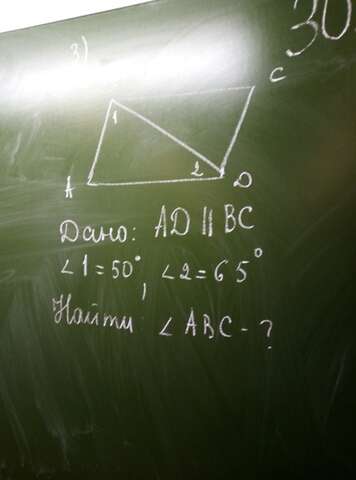 30
3)
C
1
2
A D
Дано: AD || BC
∠1=50°, ∠2=65°
Найти ∠ABC-?